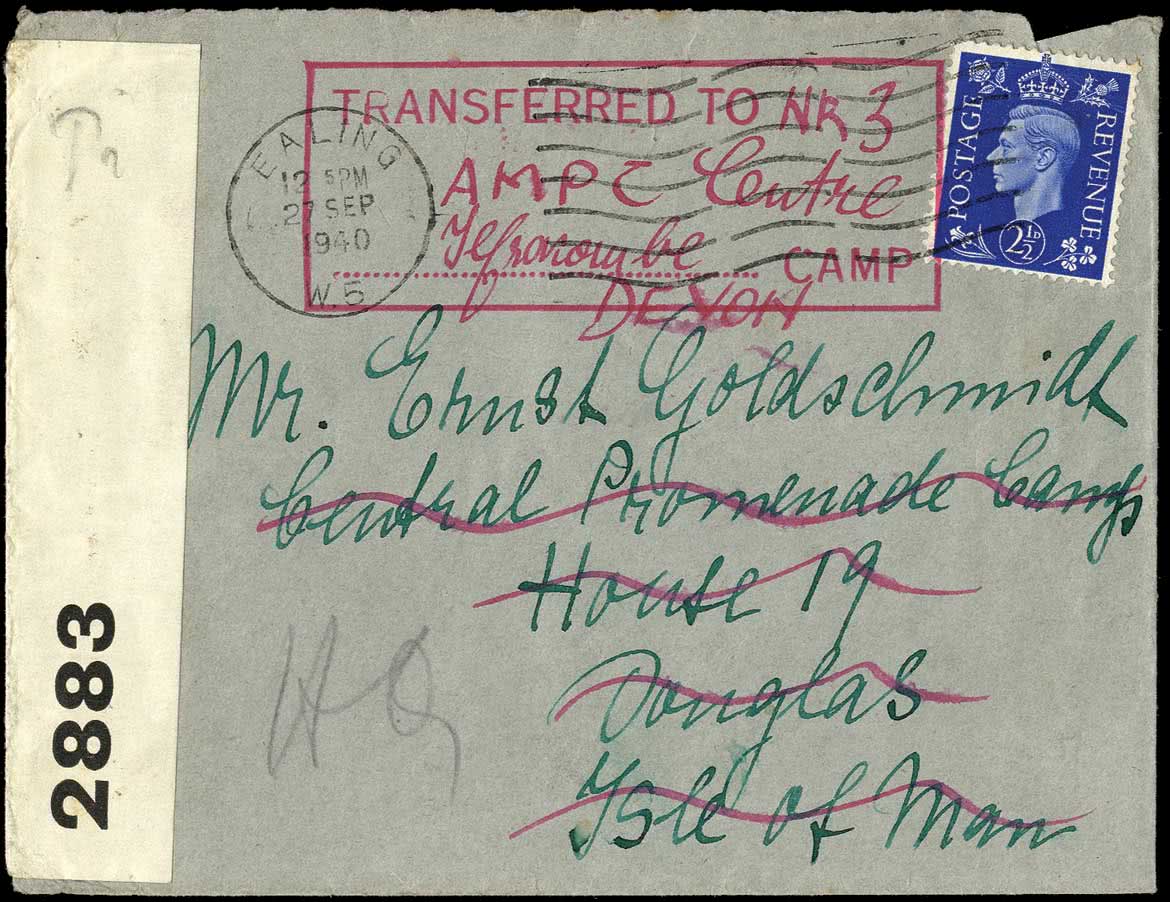 TRANSFERRED TO NR 3
AMPC Centre
Ilfracombe CAMP
DEVON
EALING
12 5PM
27 SEP
1940
W.5
POSTAGE
REVENUE
2½D
Mr. Ernst Goldschmidt
Central Promenade Camp
House 19
Douglas
Isle of Man
2883